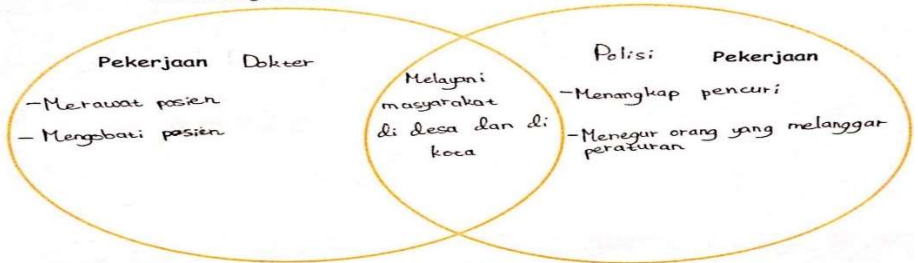 Pekerjaan Dokter
-Merawat pasien
- Mengobati pasien
Melayani
masyarakat
di desa dan di
kota
Polisi Pekerjaan
-Menangkap pencuri
-Menegur orang yang melanggar
peraturan